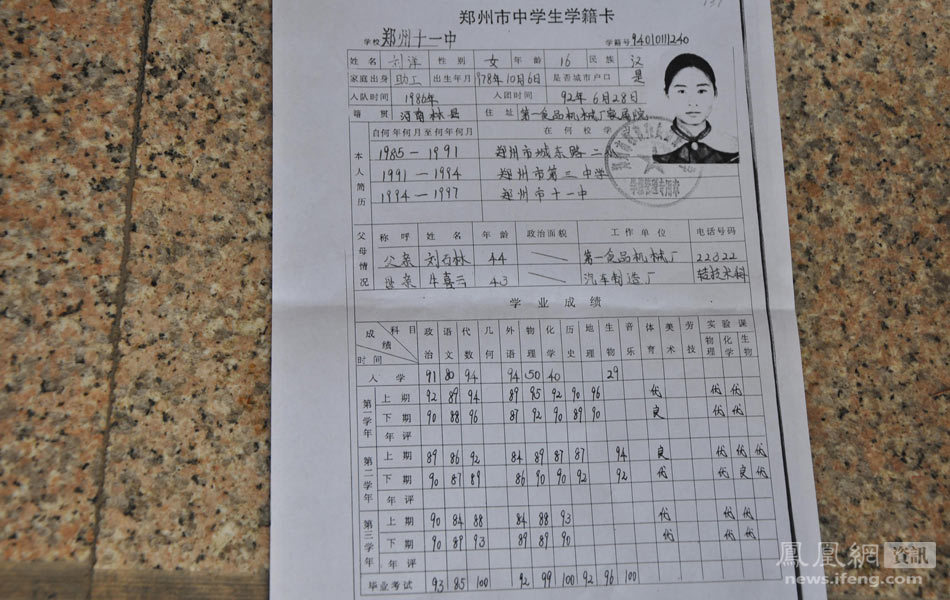 郑州市中学生学籍卡
学校 郑州十一中 学籍号 94010111240
姓名 刘洋 性别 女 年龄 16 民族 汉
家庭出身 助工 出生年月 1978年10月6日 是否城市户口 是
入队时间 1986年 入团时间 92年6月28日
籍贯 河南林县 住址 第一食品机械厂家属院
本人简历 自何年何月至何年何月 在何校学
1985—1991 郑州市城东路二
1991—1994 郑州市第三中学
1994—1997 郑州市十一中
学籍管理专用章
父母情况 称呼 姓名 年龄 政治面貌 工作单位 电话号码
父亲 刘石林 44 第一食品机械厂 22322
母亲 牛喜云 43 汽车制造厂 转技术科
学业成绩
科目 成绩 时间 政治 语文 代数 几何 外语 物理 化学 历史 地理 生物 音乐 体育 美术 劳技 实验课 物理 化学 生物
入学 91 80 94 94 50 40 29
第一学年 上期 92 89 94 89 95 92 90 96 优 优 优
下期 90 88 96 87 92 90 89 90 良 优 优
年评
第二学年 上期 89 86 92 84 89 87 87 94 良 优 优 优
下期 90 87 89 86 90 90 92 92 优 优 良 优
年评
第三学年 上期 90 84 88 84 88 93 优 优 优
下期 90 89 93 89 89 90 优 优 优
年评
毕业考试 93 85 100 92 99 100 92 96 100
鳳凰網 資訊
news.ifeng.com